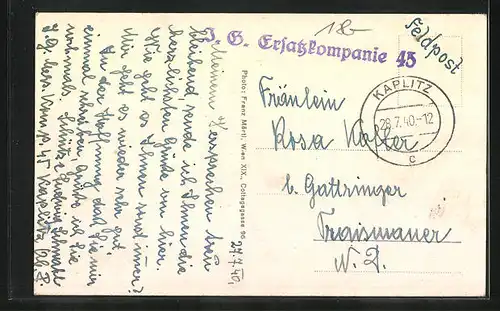 18-
J. G. Ersatzkompanie 45
Feldpost
KAPLITZ
28.7.40.-12
c
Fräulein
Rosa Kofler
b. Gattringer
Traismauer
N. D.
Photo: Franz Mörtl, Wien XIX., Collagegasse 96
27.7.40.
Meinem Versprechen treu
bleibend, sende ich Ihnen die
herzlichsten Grüße von hier.
Wie geht es Ihnen sonst immer?
Mir geht es wieder sehr gut.
In der Hoffnung, daß Sie mir
einmal schreiben, Grüße ich Sie
nochmals. Schütze Ludwig
J. G. Ers. Kom. p. 45 Kaplitz